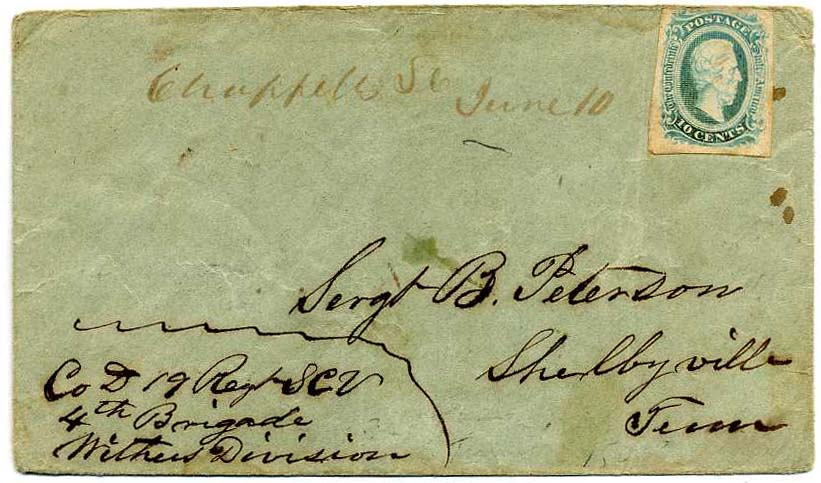 Chappells SC
June 10
POSTAGE
The Confederate States America
10 CENTS
Sergt B. Peterson
Shelbyville
Tenn
Co D 19 Regt SCV
4th Brigade
Withers Division